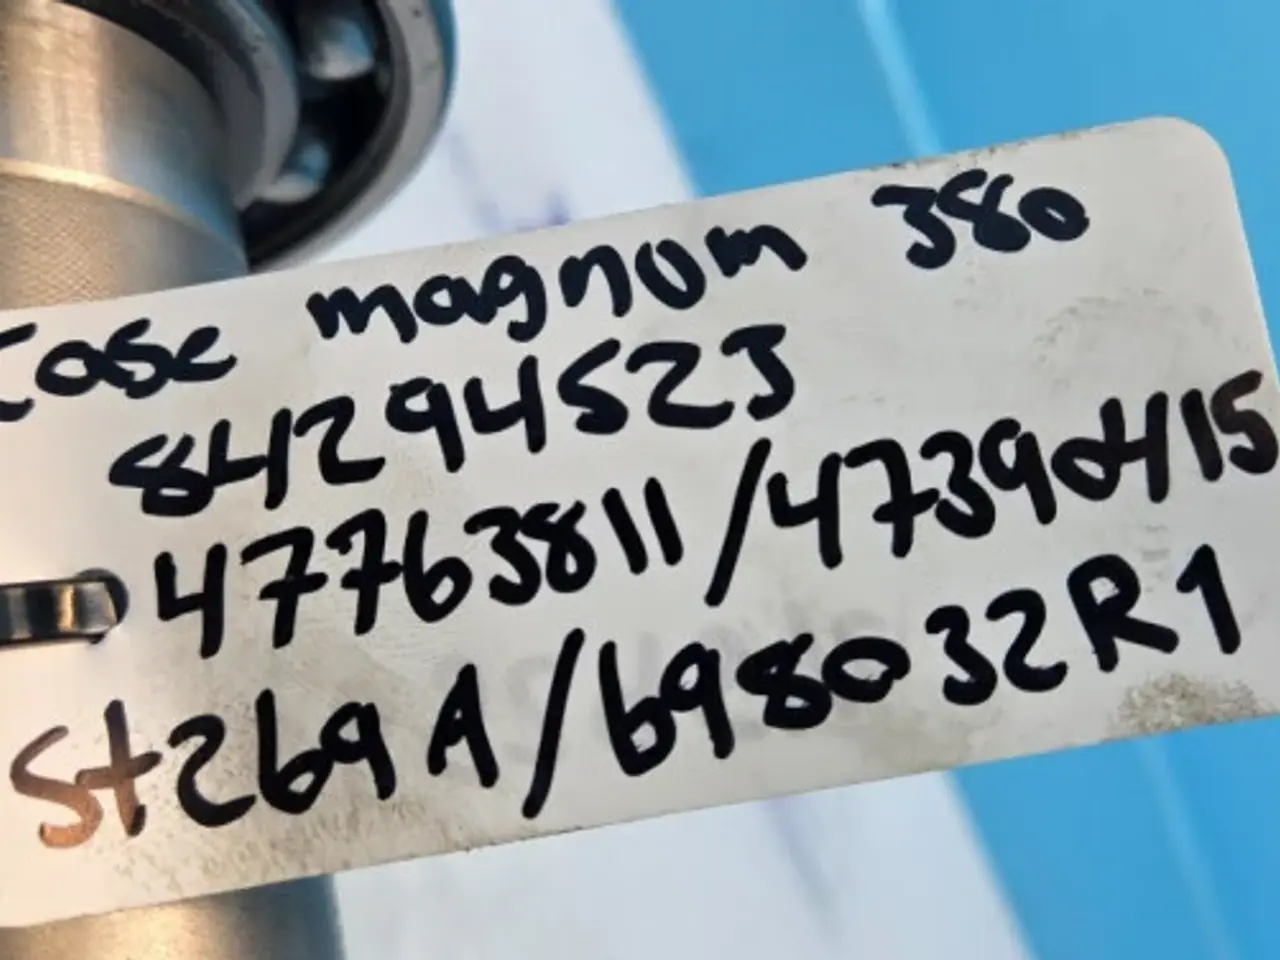 Case magnum 380
84294523
47763811/47390415
St269A/698032R1